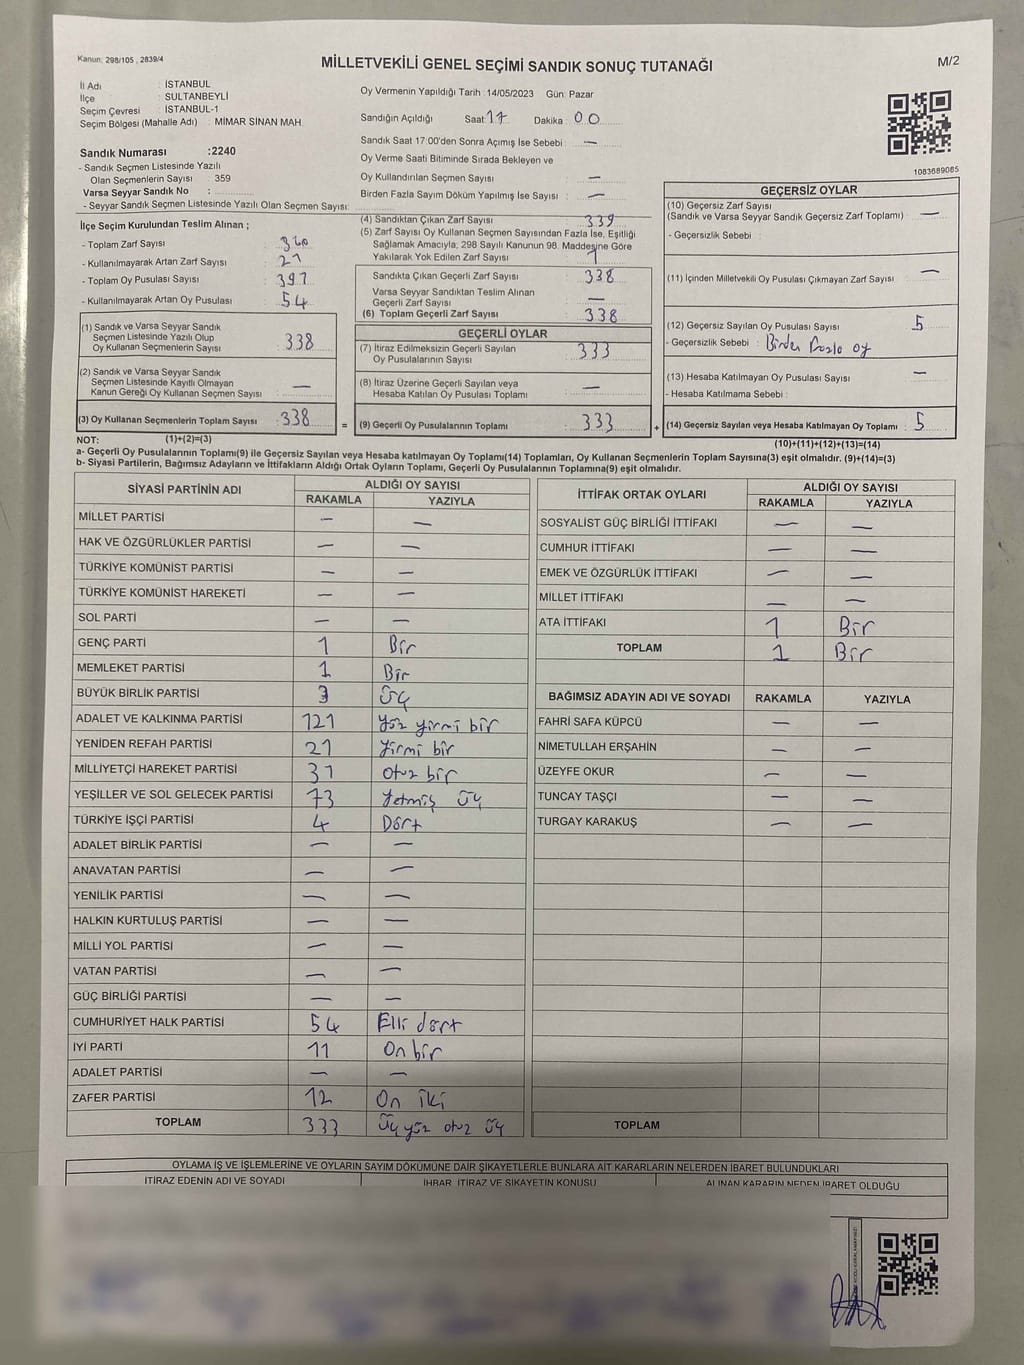 Kanun; 298/105 , 2839/4
MİLLETVEKİLİ GENEL SEÇİMİ SANDIK SONUÇ TUTANAĞI
M/2
İl Adı : İSTANBUL
İlçe : SULTANBEYLİ
Seçim Çevresi : İSTANBUL-1
Seçim Bölgesi (Mahalle Adı) : MİMAR SİNAN MAH.
Sandık Numarası :2240
- Sandık Seçmen Listesinde Yazılı
Olan Seçmenlerin Sayısı : 359
Varsa Seyyar Sandık No :
- Seyyar Sandık Seçmen Listesinde Yazılı Olan Seçmen Sayısı:
İlçe Seçim Kurulundan Teslim Alınan ;
- Toplam Zarf Sayısı 360
- Kullanılmayarak Artan Zarf Sayısı 21
- Toplam Oy Pusulası Sayısı 391
- Kullanılmayarak Artan Oy Pusulası 54
(1) Sandık ve Varsa Seyyar Sandık
Seçmen Listesinde Yazılı Olup
Oy Kullanan Seçmenlerin Sayısı : 338
(2) Sandık ve Varsa Seyyar Sandık
Seçmen Listesinde Kayıtlı Olmayan
Kanun Gereği Oy Kullanan Seçmen Sayısı : —
(3) Oy Kullanan Seçmenlerin Toplam Sayısı : 338
Oy Vermenin Yapıldığı Tarih : 14/05/2023 Gün: Pazar
Sandığın Açıldığı Saat: 17 Dakika : 00
Sandık Saat 17:00'den Sonra Açımış İse Sebebi : —
Oy Verme Saati Bitiminde Sırada Bekleyen ve
Oy Kullandırılan Seçmen Sayısı : —
Birden Fazla Sayım Döküm Yapılmış İse Sayısı : —
(4) Sandıktan Çıkan Zarf Sayısı : 339
(5) Zarf Sayısı Oy Kullanan Seçmen Sayısından Fazla İse, Eşitliği
Sağlamak Amacıyla; 298 Sayılı Kanunun 98. Maddesine Göre
Yakılarak Yok Edilen Zarf Sayısı : 1
Sandıkta Çıkan Geçerli Zarf Sayısı : 338
Varsa Seyyar Sandıktan Teslim Alınan
Geçerli Zarf Sayısı : —
(6) Toplam Geçerli Zarf Sayısı : 338
GEÇERLİ OYLAR
(7) İtiraz Edilmeksizin Geçerli Sayılan
Oy Pusulalarının Sayısı : 333
(8) İtiraz Üzerine Geçerli Sayılan veya
Hesaba Katılan Oy Pusulası Toplamı : —
= (9) Geçerli Oy Pusulalarının Toplamı : 333 +
1083689085
GEÇERSİZ OYLAR
(10) Geçersiz Zarf Sayısı
(Sandık ve Varsa Seyyar Sandık Geçersiz Zarf Toplamı) : —
- Geçersizlik Sebebi :
(11) İçinden Milletvekili Oy Pusulası Çıkmayan Zarf Sayısı : —
(12) Geçersiz Sayılan Oy Pusulası Sayısı : 5
- Geçersizlik Sebebi : Birden fazla oy
(13) Hesaba Katılmayan Oy Pusulası Sayısı : —
- Hesaba Katılmama Sebebi :
(14) Geçersiz Sayılan veya Hesaba Katılmayan Oy Toplamı : 5
NOT: (1)+(2)=(3)
(10)+(11)+(12)+(13)=(14)
a- Geçerli Oy Pusulasının Toplamı(9) ile Geçersiz Sayılan veya Hesaba Katılmayan oy Toplamı(14) Toplamları, Oy Kullanan Seçmenlerin Toplam Sayısına(3) eşit olmalıdır. (9)+(14)=(3)
b- Siyasi Partilerin, Bağımsız Adayların ve İttifakların Aldığı Ortak Oyların Toplamı, Geçerli Oy Pusulalarının Toplamına(9) eşit olmalıdır.
SİYASİ PARTİNİN ADI ALDIĞI OY SAYISI
RAKAMLA YAZIYLA
MİLLET PARTİSİ — —
HAK VE ÖZGÜRLÜKLER PARTİSİ — —
TÜRKİYE KOMÜNİST PARTİSİ — —
TÜRKİYE KOMÜNİST HAREKETİ — —
SOL PARTİ — —
GENÇ PARTİ 1 Bir
MEMLEKET PARTİSİ 1 Bir
BÜYÜK BİRLİK PARTİSİ 3 Üç
ADALET VE KALKINMA PARTİSİ 121 Yüz yirmi bir
YENİDEN REFAH PARTİSİ 21 Yirmi bir
MİLLİYETÇİ HAREKET PARTİSİ 31 Otuz bir
YEŞİLLER VE SOL GELECEK PARTİSİ 73 Yetmiş üç
TÜRKİYE İŞÇİ PARTİSİ 4 Dört
ADALET BİRLİK PARTİSİ — —
ANAVATAN PARTİSİ — —
YENİLİK PARTİSİ — —
HALKIN KURTULUŞ PARTİSİ — —
MİLLİ YOL PARTİSİ — —
VATAN PARTİSİ — —
GÜÇ BİRLİĞİ PARTİSİ — —
CUMHURİYET HALK PARTİSİ 54 Elli dört
İYİ PARTİ 11 On bir
ADALET PARTİSİ — —
ZAFER PARTİSİ 12 On iki
TOPLAM 333 Üç yüz otuz üç
İTTİFAK ORTAK OYLARI ALDIĞI OY SAYISI
RAKAMLA YAZIYLA
SOSYALİST GÜÇ BİRLİĞİ İTTİFAKI — —
CUMHUR İTTİFAKI — —
EMEK VE ÖZGÜRLÜK İTTİFAKI — —
MİLLET İTTİFAKI — —
ATA İTTİFAKI 1 Bir
TOPLAM 1 Bir
BAĞIMSIZ ADAYIN ADI VE SOYADI RAKAMLA YAZIYLA
FAHRİ SAFA KÜPCÜ — —
NİMETULLAH ERŞAHİN — —
ÜZEYFE OKUR — —
TUNCAY TAŞÇI — —
TURGAY KARAKUŞ — —
TOPLAM
OYLAMA İŞ VE İŞLEMLERİNE VE OYLARIN SAYIM DÖKÜMÜNE DAİR ŞİKAYETLERLE BUNLARA AİT KARARLARIN NELERDEN İBARET BULUNDUKLARI
İTİRAZ EDENİN ADI VE SOYADI İHBAR, İTİRAZ VE ŞİKAYETİN KONUSU ALINAN KARARIN NEDEN İBARET OLDUĞU